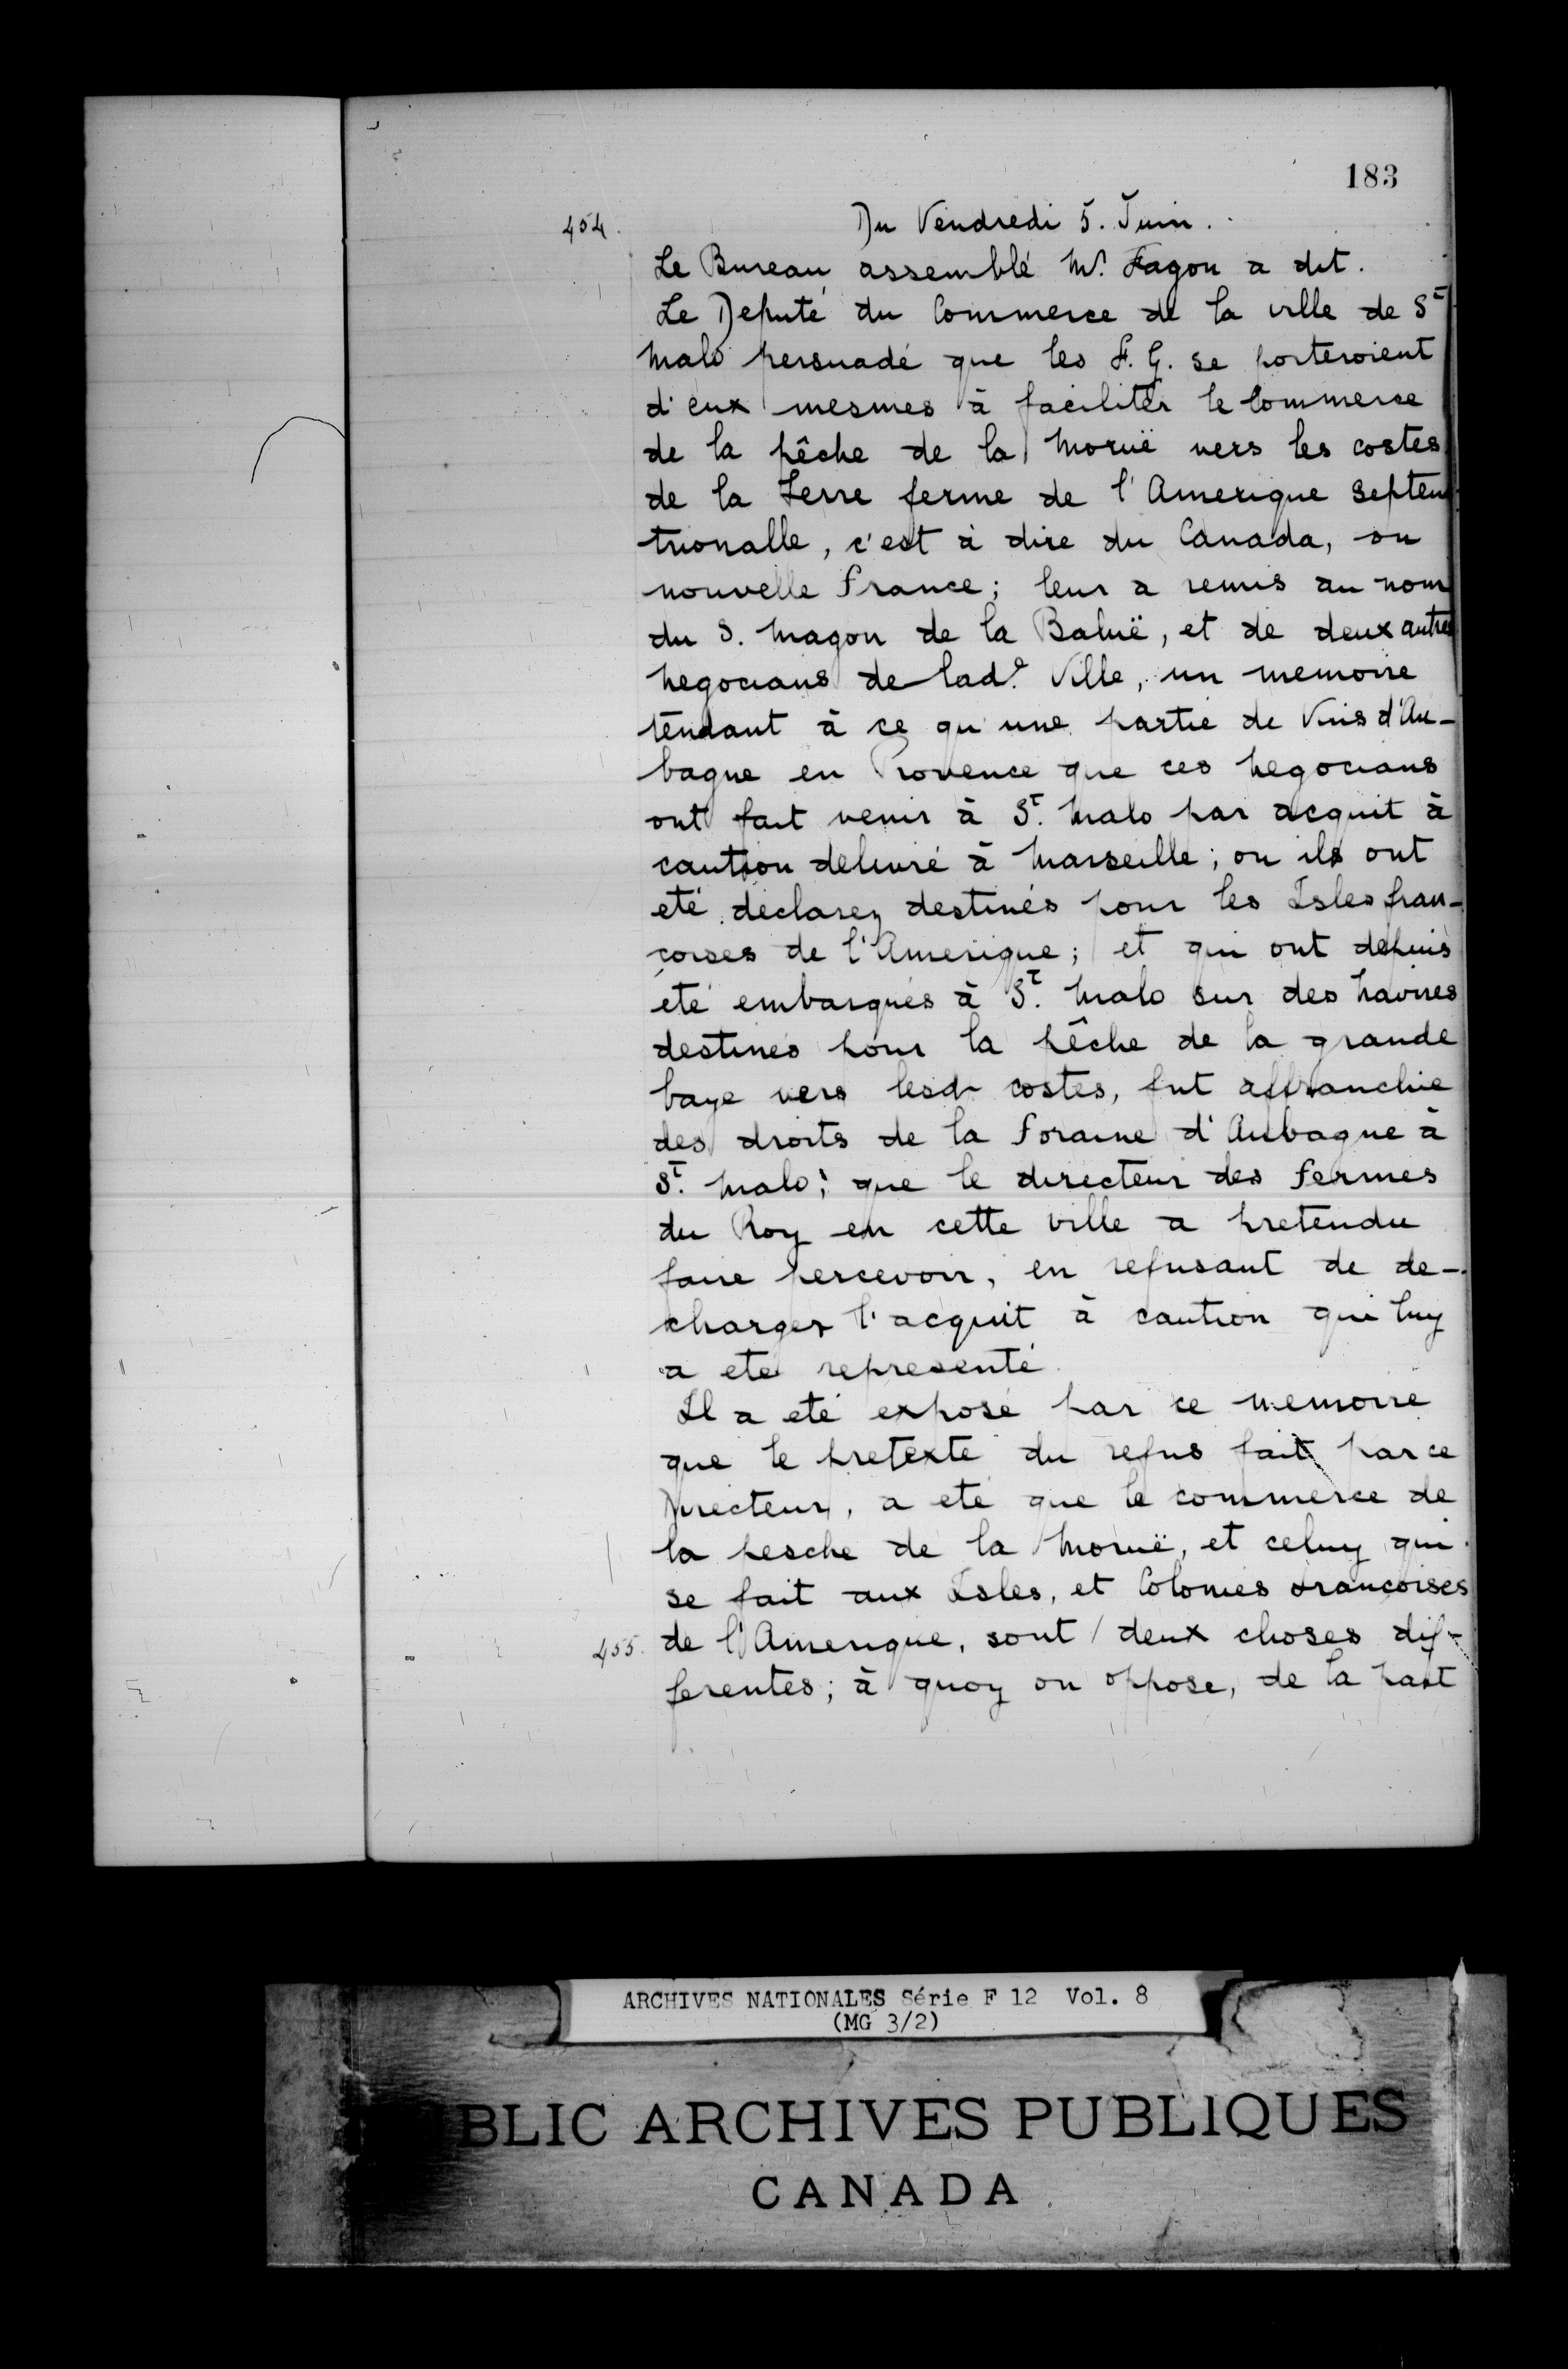 183
454.
Du Vendredi 5. Juin.
Le Bureau assemblé Mr. Fagon a dit.
Le Deputé du Commerce de la ville de St
Malo persuadé que les F. G. se porteroient
d'eux mesmes à faciliter le Commerce
de la pêche de la Moruë vers les costes
de la Terre ferme de l'Amerique Septen
trionalle, c'est à dire du Canada, ou
nouvelle france; leur a remis au nom
du S. Magon de la Baluë, et de deux autres
Negocians de lade. Ville, un memoire
tendant à ce qu'une partie de Vins d'Au-
bagne en Provence que ces Negocians
ont fait venir à St. Malo par acquit à
caution delivré à Marseille; ou ils ont
eté declarez destinés pour les Isles fran-
çoises de l'Amerique; et qui ont depuis
eté embarqués à St. Malo sur des Navires
destinés pour la pêche de la grande
baye vers lesd. costes, fut affranchie
des droits de la foraine d'Aubagne à
St. Malo; que le directeur des fermes
du Roy en cette ville a pretendu
faire percevoir, en refusant de de-
charger l'acquit à caution qui luy
a eté representé.
Il a eté exposé par ce memoire
que le pretexte du refus fait par ce
Directeur, a eté que le commerce de
la pesche de la Moruë, et celuy qui
se fait aux Isles, et Colonies françoises
455. de l'Amerique, sont / deux choses dif-
ferentes; à quoy on oppose, de la part
ARCHIVES NATIONALES Série F 12 Vol. 8
(MG 3/2)
BLIC ARCHIVES PUBLIQUES
CANADA